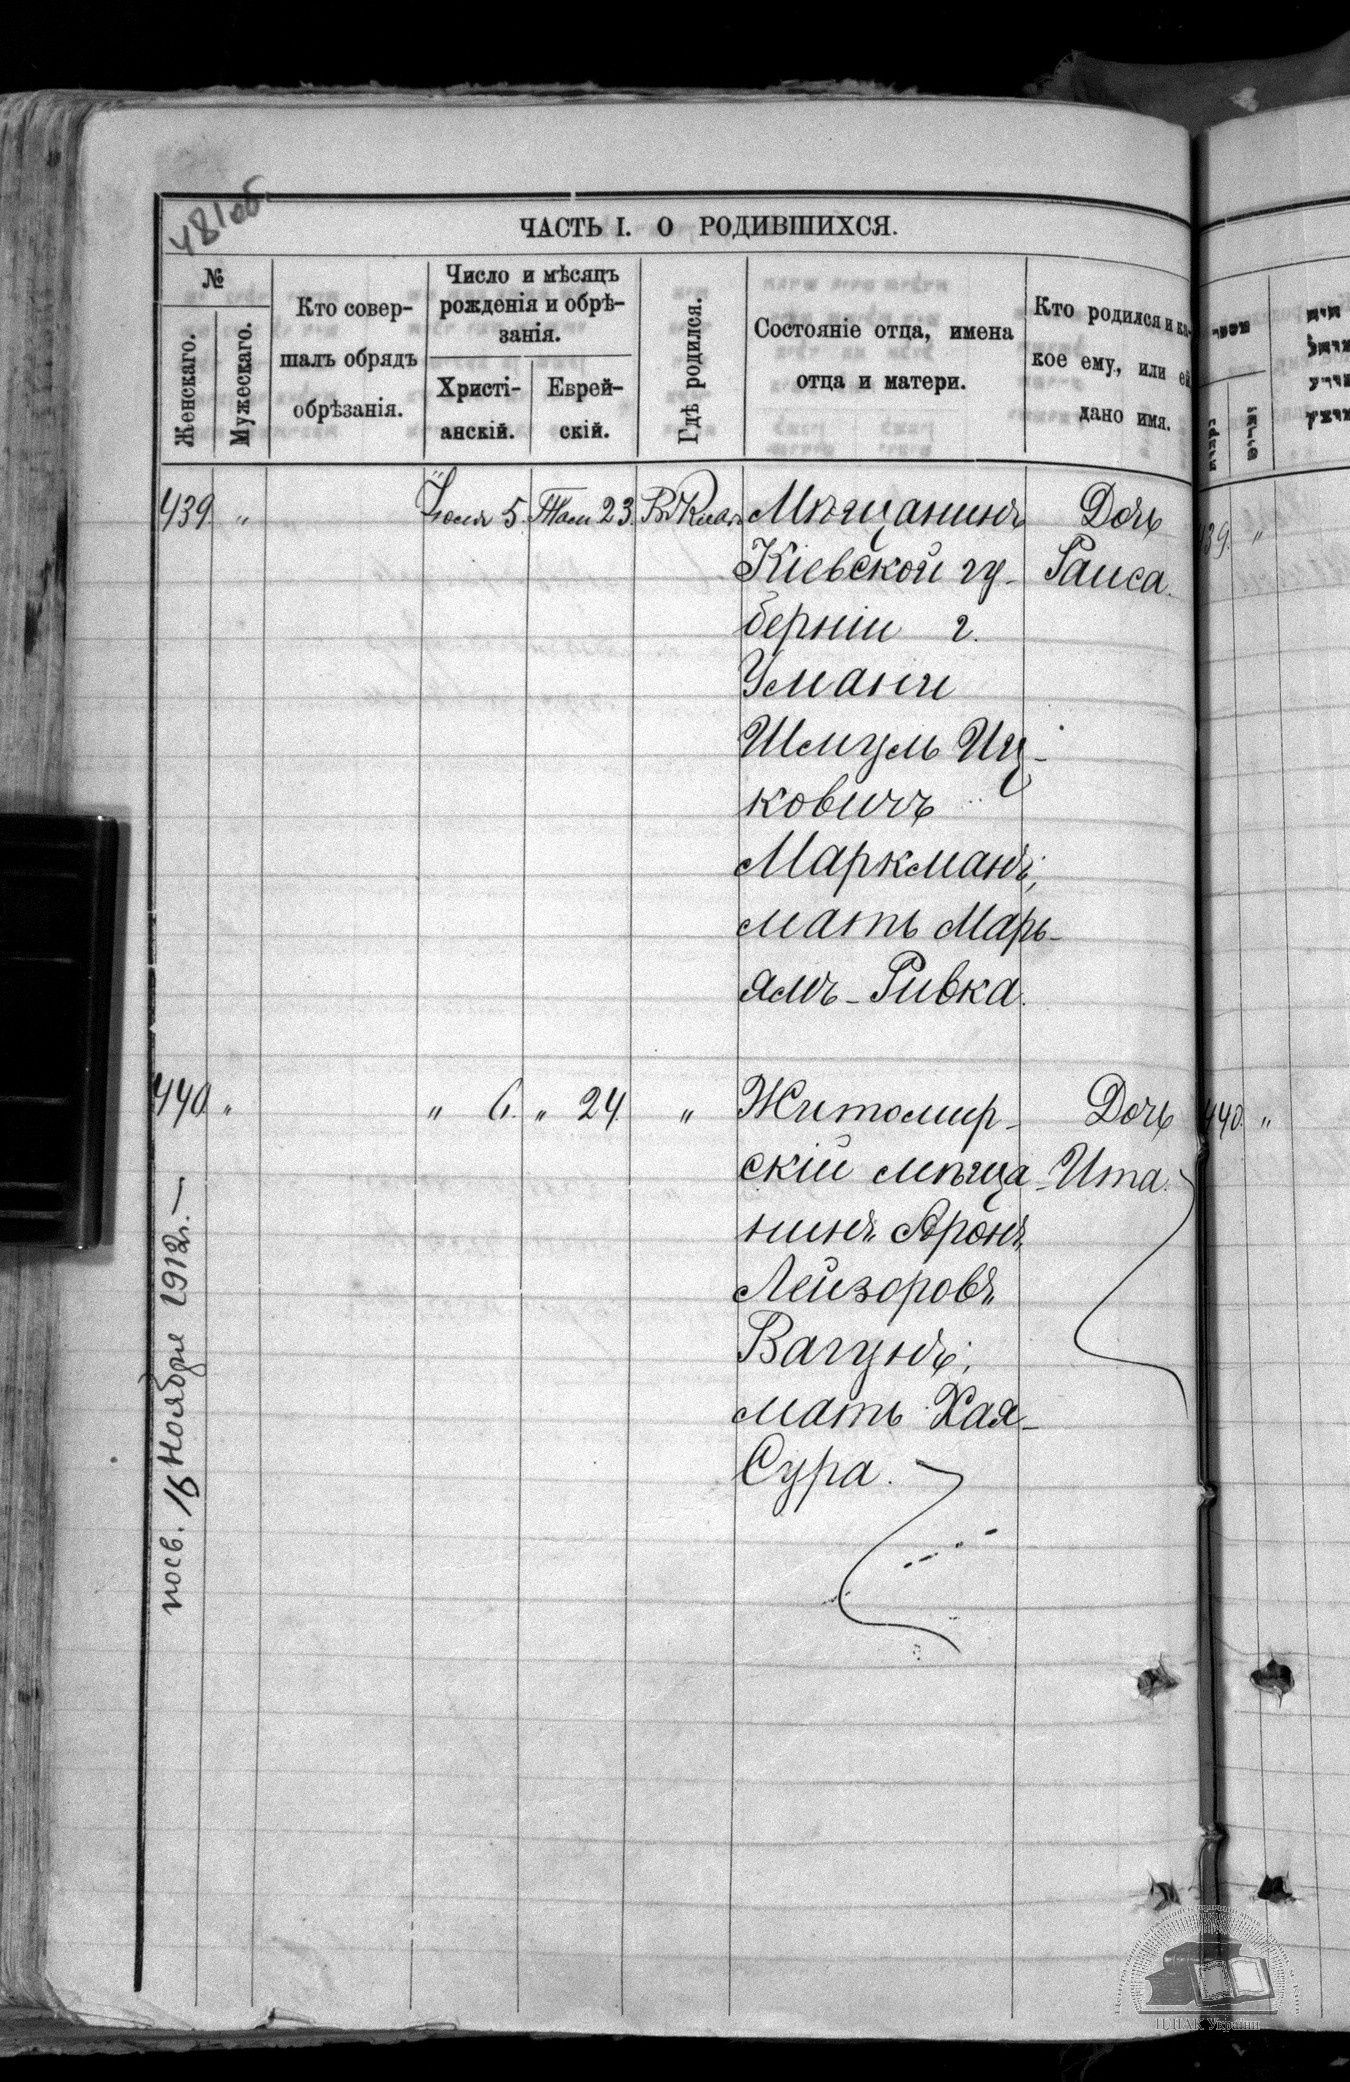 481об.
ЧАСТЬ I. О РОДИВШИХСЯ.
№
Женскаго.
Мужескаго.
Кто совер-
шалъ обрядъ
обрѣзанія.
Число и мѣсяцъ
рожденія и обрѣ-
занія.
Христі-
анскій.
Еврей-
скій.
Гдѣ родился.
Состояніе отца, имена
отца и матери.
Кто родился и ка-
кое ему, или ей
дано имя.
439. " Іюля 5. Там 23. Мѣщанинъ Дочь
Кіевской гу- Раиса.
берніи г.
Умани
Шмуль Иц-
ковичъ
Маркманъ,
мать Марь-
ямъ-Ривка.
440. " " 6. " 24. " Житомир- Дочь
скій мѣща- Ита.
нинъ Аронъ
Лейзоровъ
Вагунъ,
мать Хая-
Сура.
посв. 16 Ноября 1912 г.—
139. "
440. "
ЦДІАК України